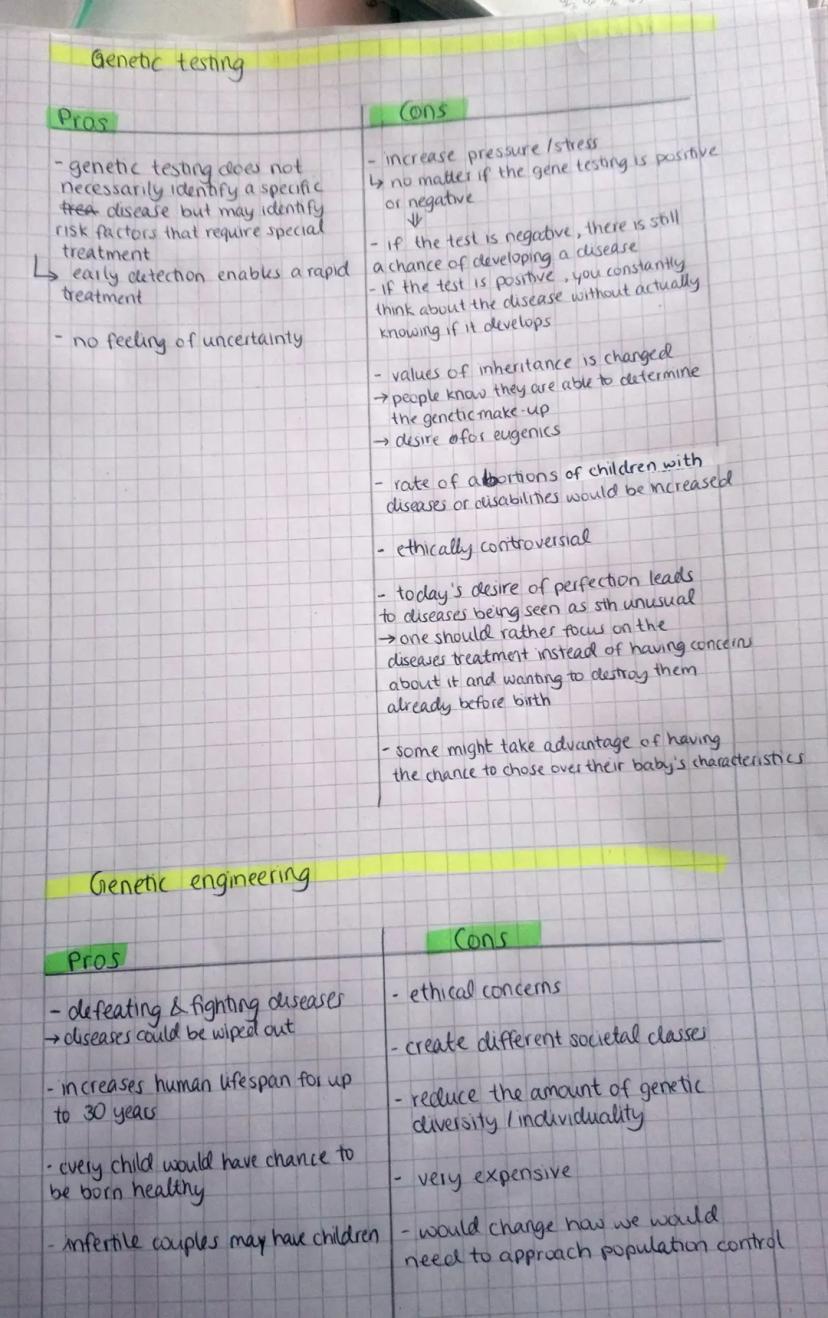 Genetic testing
Pros
- genetic testing does not
necessarily identify a specific
trea disease but may identify
risk factors that require special
treatment
↳ early detection enables a rapid
treatment
- no feeling of uncertainty
Cons
- increase pressure / stress
↳ no matter if the gene testing is positive
or negative
⇓
- if the test is negative, there is still
a chance of developing a disease
- if the test is positive, you constantly
think about the disease without actually
knowing if it develops
- values of inheritance is changed
→ people know they are able to determine
the genetic make-up
→ desire for eugenics
- rate of abortions of children with
diseases or disabilities would be increased
- ethically controversial
- today's desire of perfection leads
to diseases being seen as sth unusual
→ one should rather focus on the
diseases treatment instead of having concerns
about it and wanting to destroy them
already before birth
- some might take advantage of having
the chance to chose over their baby's characteristics
Genetic engineering
Pros
- defeating & fighting diseases
→ diseases could be wiped out
- increases human lifespan for up
to 30 years
- every child would have chance to
be born healthy
- infertile couples may have children
Cons
- ethical concerns
- create different societal classes
- reduce the amount of genetic
diversity / individuality
- very expensive
- would change how we would
need to approach population control